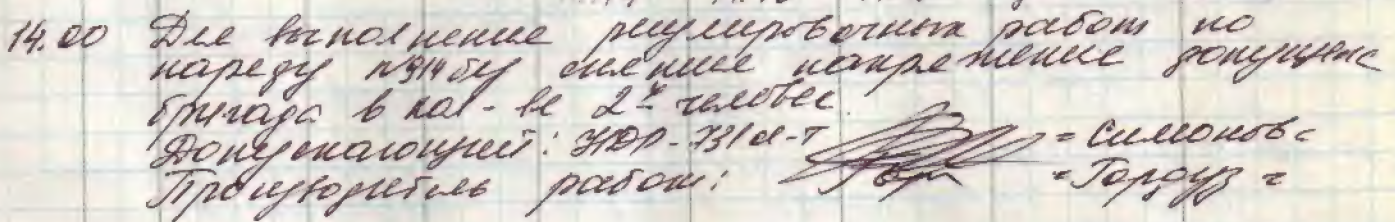 14.00 Для выполнение регулировочных работ по
наряду №914 без снятие напряжение допущена
бригада в кол-ве 2х человек.
Допускающий: -Симонов-
Производитель работ: =Гордуз=